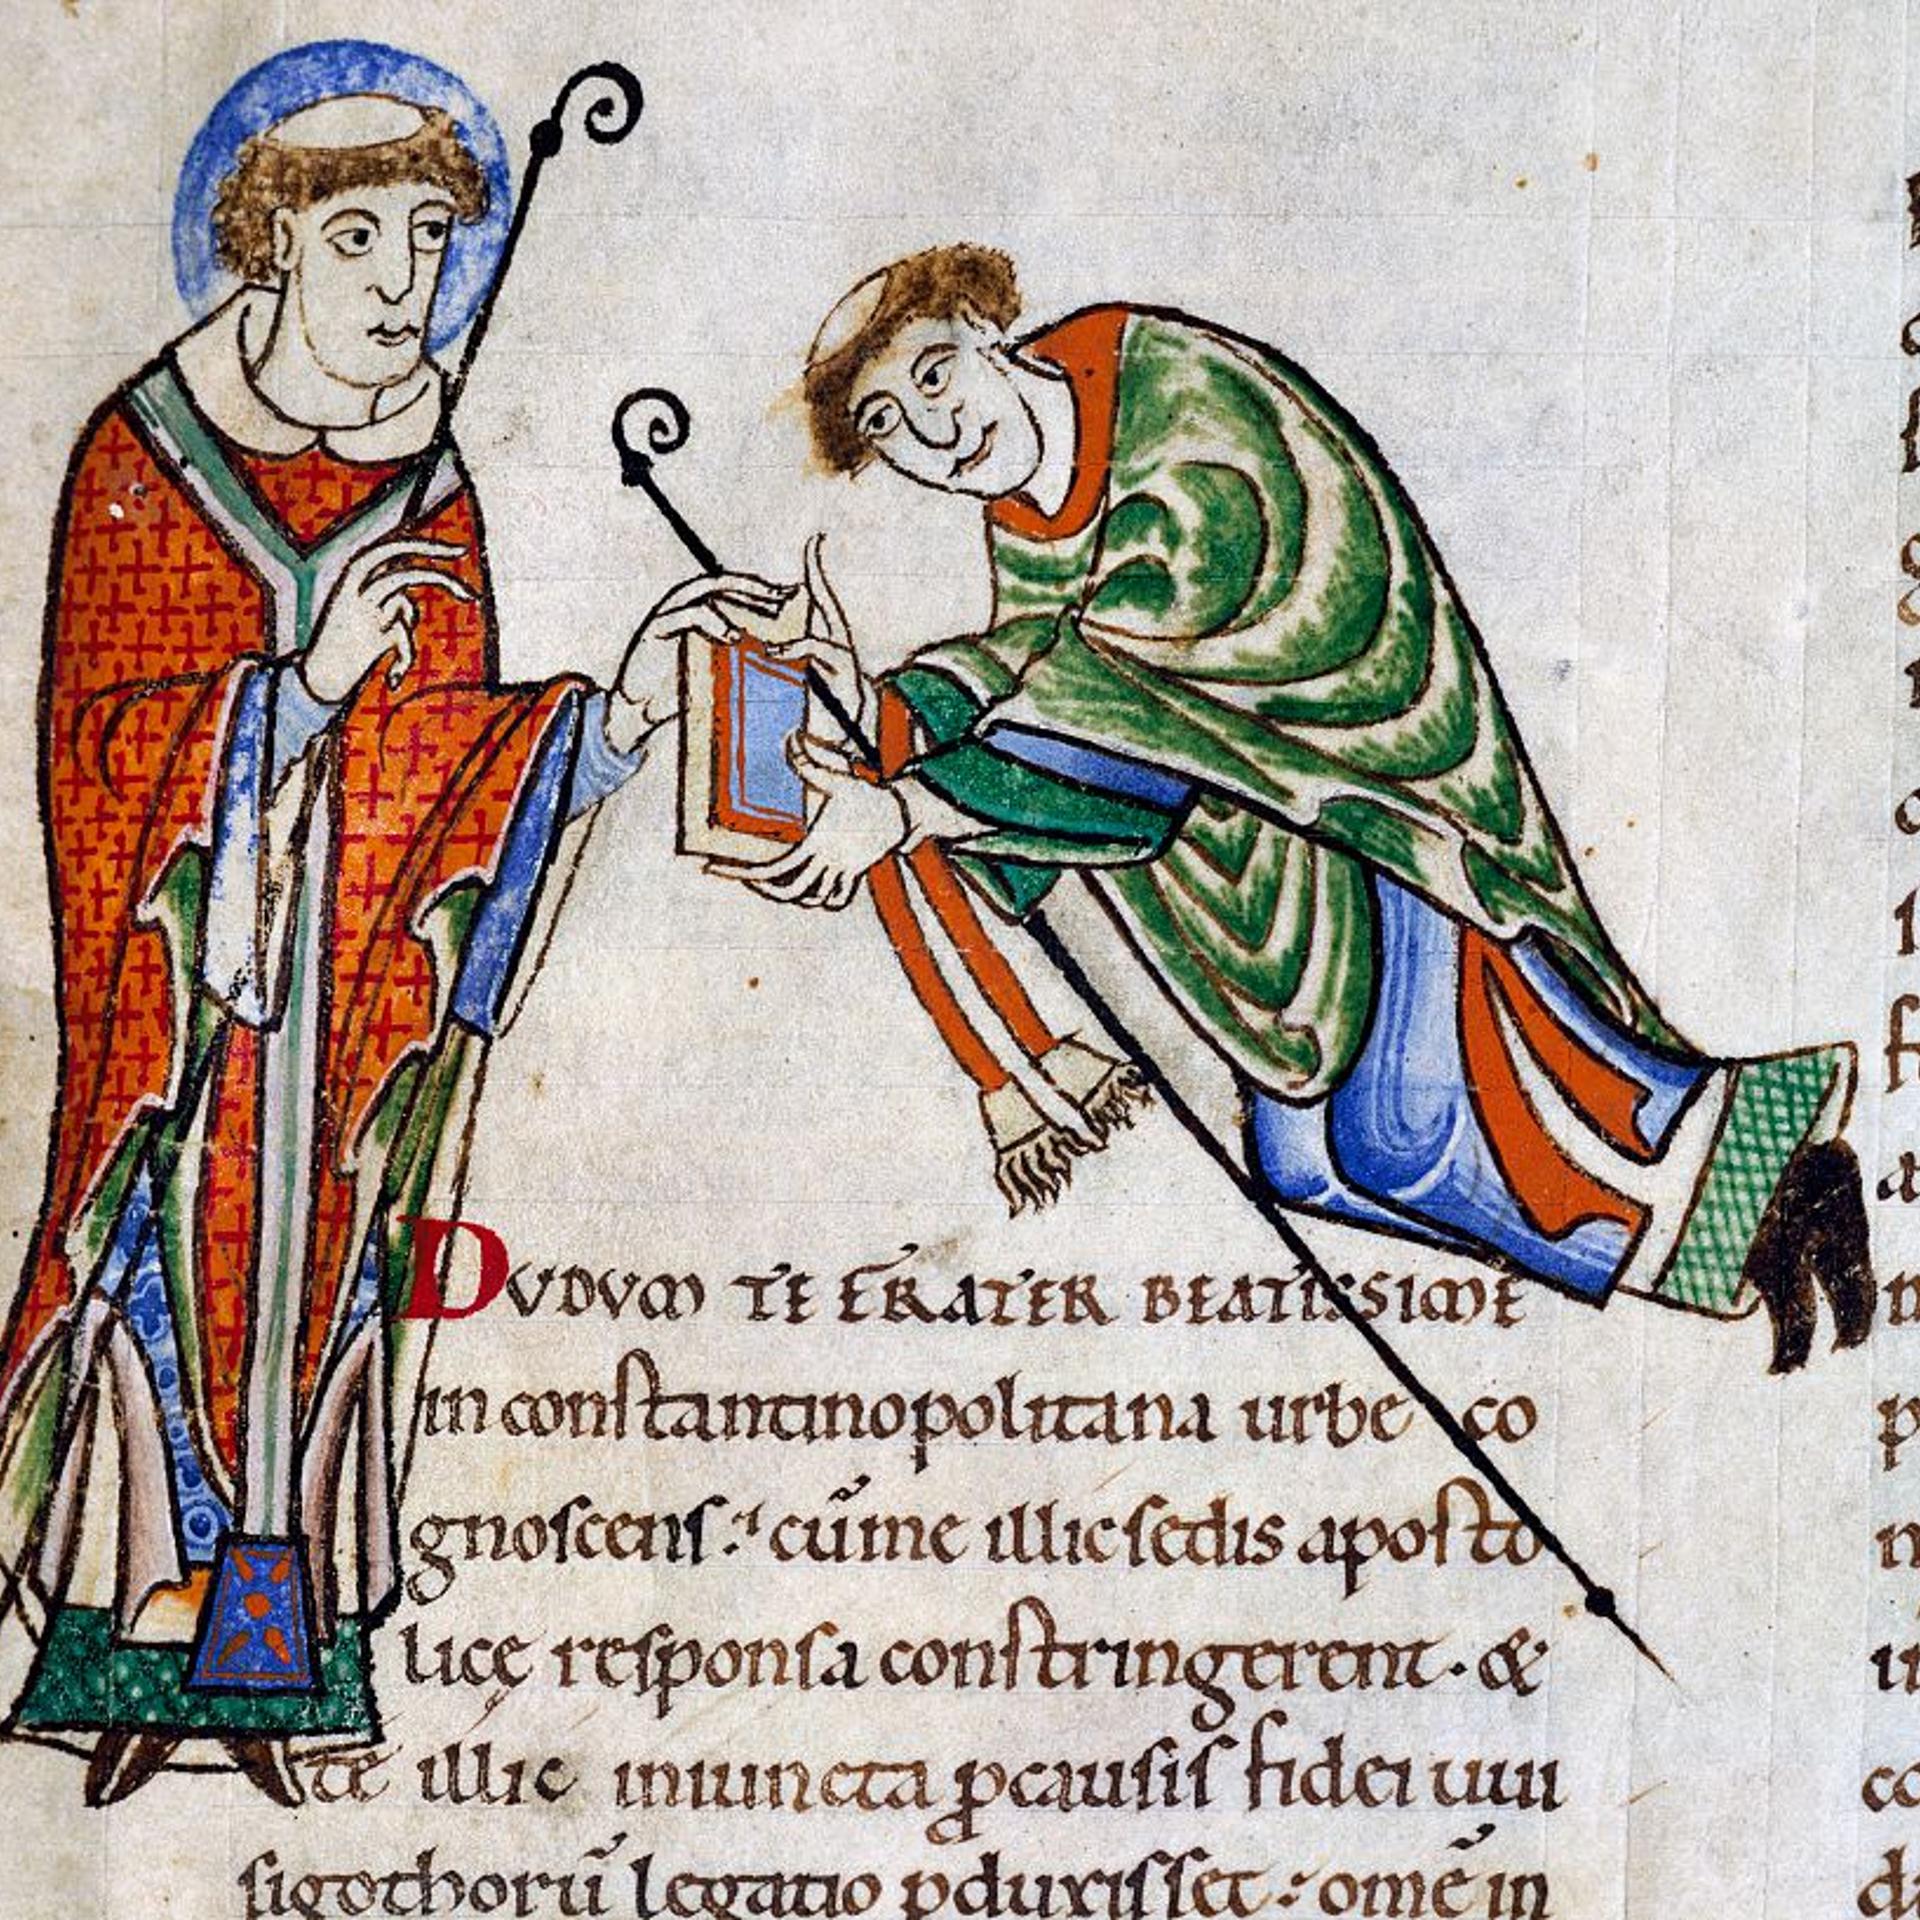 DUDUM TE FRATER BEATISSIME
in constantinopolitana urbe co
gnoscens: cū me illic sedis aposto
licę responsa constringerent. &
te illic iniuncta ꝑ causis fidei uui
sigothorū legatio ꝑduxisset: omē in